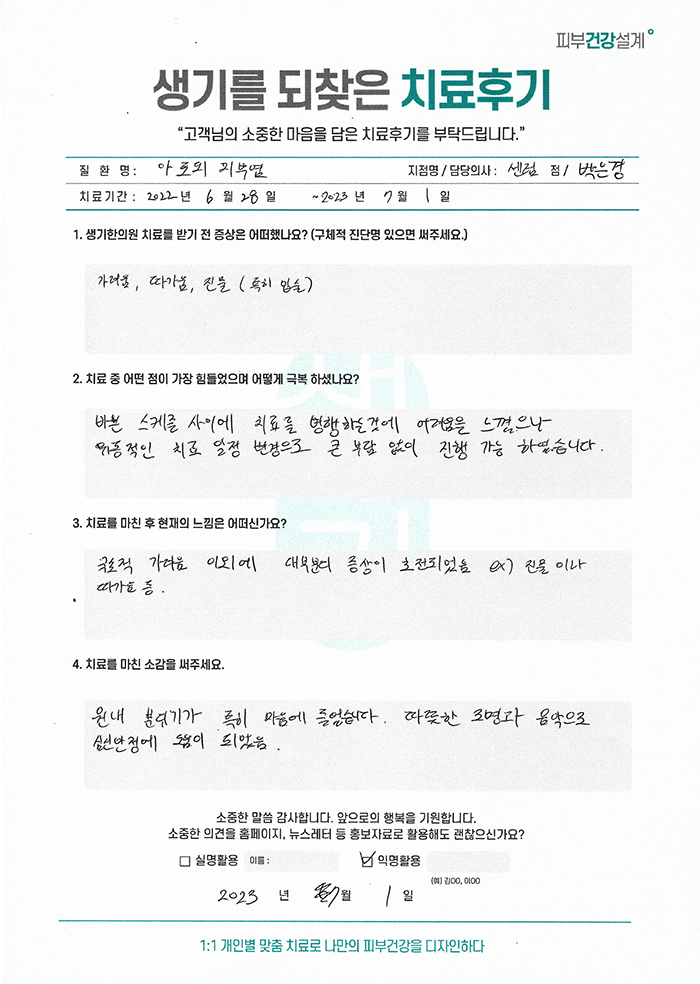 피부건강설계
생기를 되찾은 치료후기
"고객님의 소중한 마음을 담은 치료후기를 부탁드립니다."
질 환 명 : 아토피 피부염 지점명 / 담당의사 : 센텀 점 / 박은경
치료기간 : 2022년 6월 28일 ~2023년 7월 1일
1. 생기한의원 치료를 받기 전 증상은 어떠했나요? (구체적 진단명 있으면 써주세요.)
가려움, 따가움, 진물 (특히 입술)
2. 치료 중 어떤 점이 가장 힘들었으며 어떻게 극복 하셨나요?
바쁜 스케줄 사이에 치료를 병행하는것에 어려움을 느꼈으나
유동적인 치료 일정 변경으로 큰 부담 없이 진행 가능 하였습니다.
3. 치료를 마친 후 현재의 느낌은 어떠신가요?
국소적 가려움 이외에 대부분의 증상이 호전되었음 ex) 진물이나
따가움 등.
4. 치료를 마친 소감을 써주세요.
원내 분위기가 특히 마음에 들었습니다. 따뜻한 조명과 음악으로
심신안정에 도움이 되었음.
소중한 말씀 감사합니다. 앞으로의 행복을 기원합니다.
소중한 의견을 홈페이지, 뉴스레터 등 홍보자료로 활용해도 괜찮으신가요?
실명활용 이름 : 익명활용
(예) 김OO, 이OO
2023 년 7월 1일
1:1 개인별 맞춤 치료로 나만의 피부건강을 디자인하다